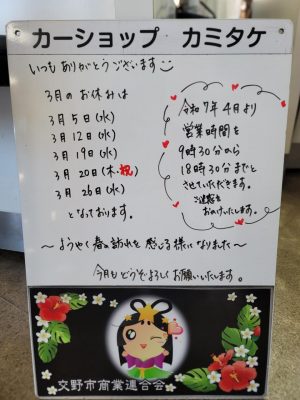 カーショップ カミタケ
いつもありがとうございます
3月のお休みは
3月5日(水)
3月12日(水)
3月19日(水)
3月20日(木・祝)
3月26日(水)
となっております。
令和7年4月より
営業時間を
9時30分から
18時30分までと
させていただきます。
ご迷惑を
おかけいたします。
～ようやく春の訪れを感じる様になりました～
今月もどうぞよろしくお願いいたします。
交野市商業連合会